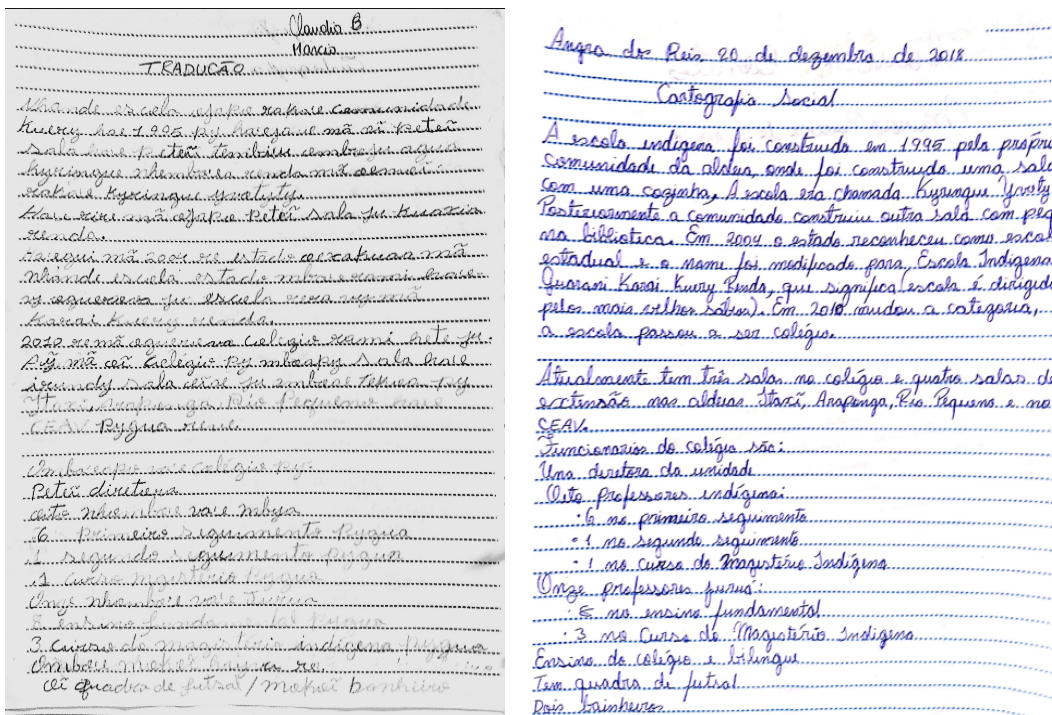 Claudio B
Marcio
TRADUCÃO
Nhande escola ojapo rakae comunidade
kuery hae 1995 py
sala haie peteĩ tembiu ombojy agua
kyringue nhemboea renda mã
rakae kyringue yvotyty.
Haie rire mã ojapo Peteĩ sala ju kuaxia
renda.
Haegui mã 2004 re estado oexakuaa mã
nhande escola estado mbae rami haie
ju escola rera
Karai Kuery renda.
2010 re mã colegio rami hete ju.
Ay mã oĩ Colégio Py mboapy sala haie
irundy sala ju py
Itaxi, Arapunga Rio Pequeno haie
CEAV Pygua reve
vaie colégio py:
Peteĩ diretora
oito nhomboe vaie mbya
6 primeiro seguimento Pygua
.1 segundo seguimento pygua
.1 curso magisterio Pygua
Onze nhomboe vaie Jurua
8 ensino fundamental Pygua
3 curso do magistério indígena Pygua
Omboe mokoĩ
Oĩ quadra de futsal / mokoĩ banheiro
Angra dos Reis 20 de dezembro de 2018
Cartografia Social
A escola indígena foi construida en 1995 pela própri
comunidade da aldeia, onde foi construido uma sala
com uma cozinha, A escola era chamada Kyringue Yvoty
Posteriormente a comunidade construiu outra sala com peq
na biblioteca. Em 2004 o estado reconheceu como escol
estadual e o nome foi modificado para, Escola Indígena
Guarani Karai Kuery Renda, que significa (escola é dirigida
pelos mais velhos sábios). Em 2010 mudou a categoria,
a escola passou a ser colégio.
Atualmente tem três salas no colégio e quatro salas de
extensão nas aldeias Itaxĩ, Araponga, Rio Pequeno e no
CEAV.
Funcionarios do colégio são:
Una diretora da unidade
Oito professores indígena:
·6 no primeiro seguimento
·1 no segundo seguimento
·1 no curso do Magistério Indígena
Onze professores juruá:
·8 no ensino fundamental
·3 no Curso do Magistério Indígena
Ensino do colégio e bilíngue
Tem quadra de futsal
Dois bainheiros